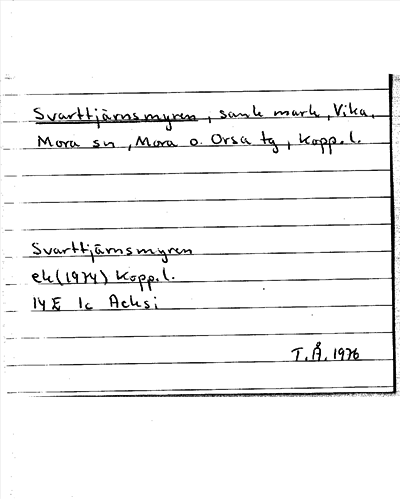 Svarttjärnsmyren, sank mark, Vika,
Mora sn, Mora o. Orsa tg, Kopp.l.
Svarttjärnsmyren
ek (1974) Kopp.l.
14E 1c Acksi
T.Å. 1976